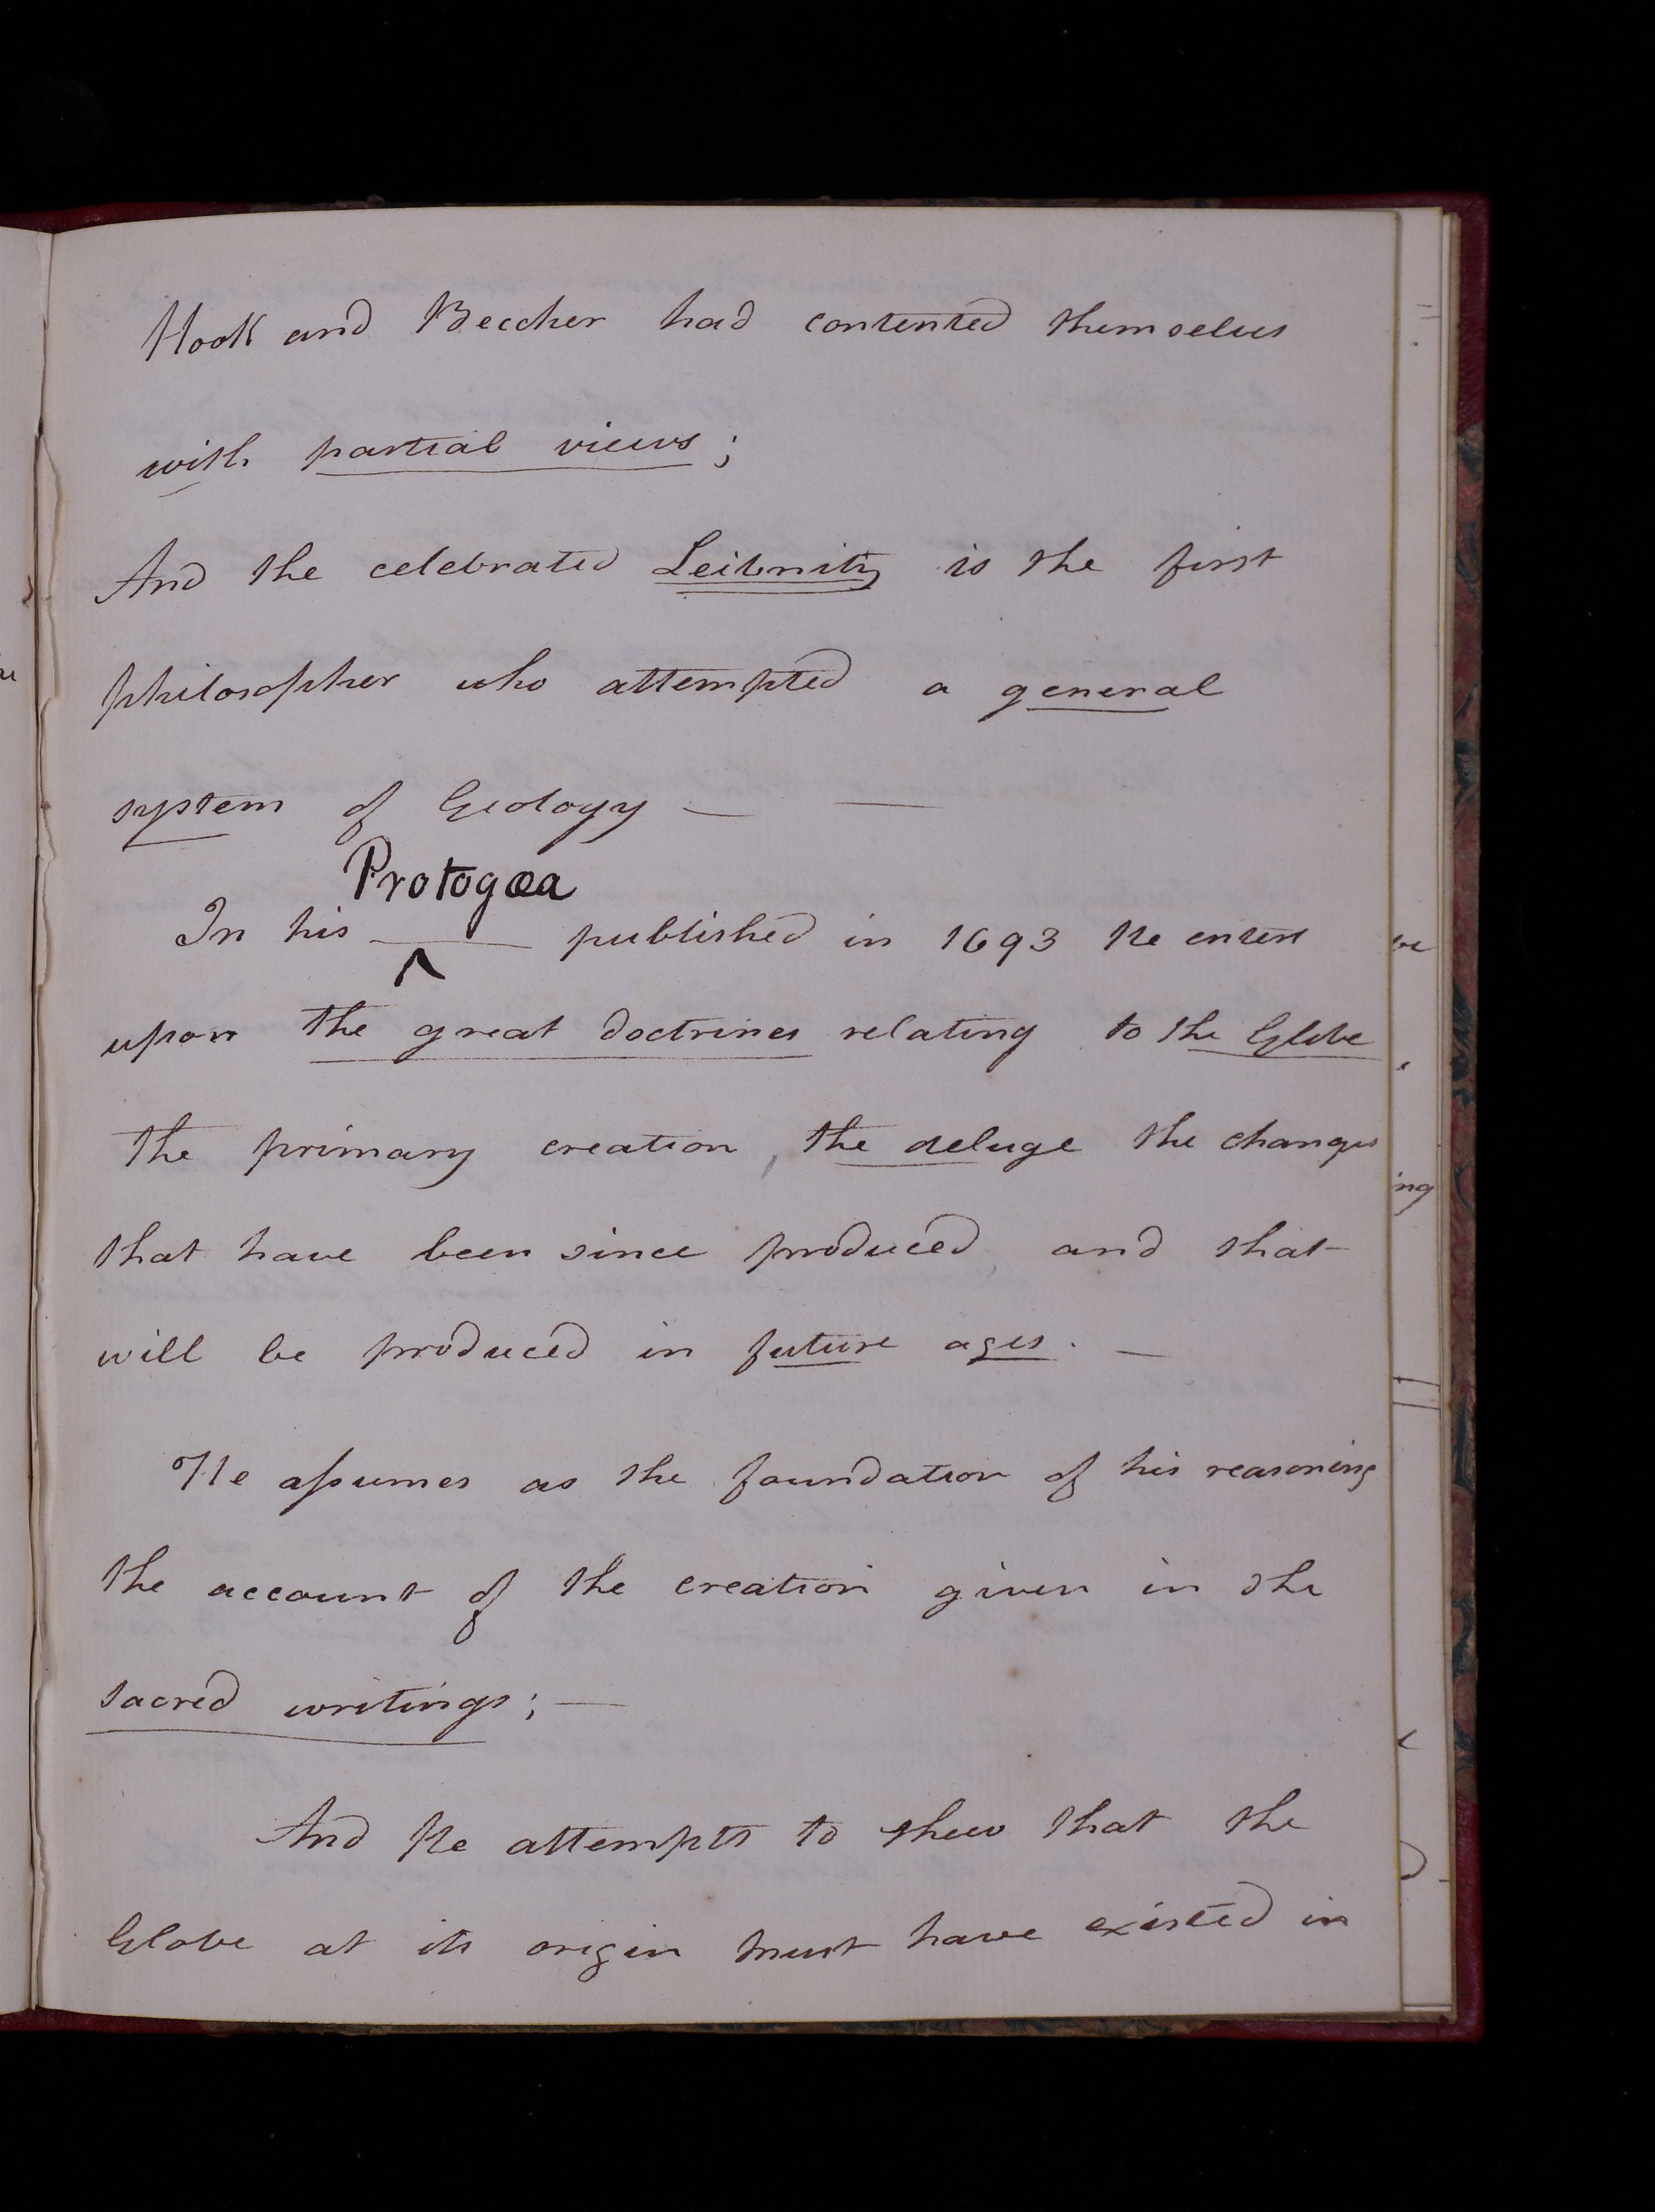 Hook and Beccher had contented themselves
with partial views;
And the celebrated Leibnitz is the first
philosopher who attempted a general
system of Geology — —
Protogœa
In his ^ published in 1693 He enters
upon the great doctrines relating to the Globe
the primary creation, the deluge the changes
that have been since produced, and that
will be produced in future ages. —
He assumes as the foundation of his reasoning
the account of the creation given in the
sacred writings; —
And He attempts to shew that the
Globe at its origin must have existed in